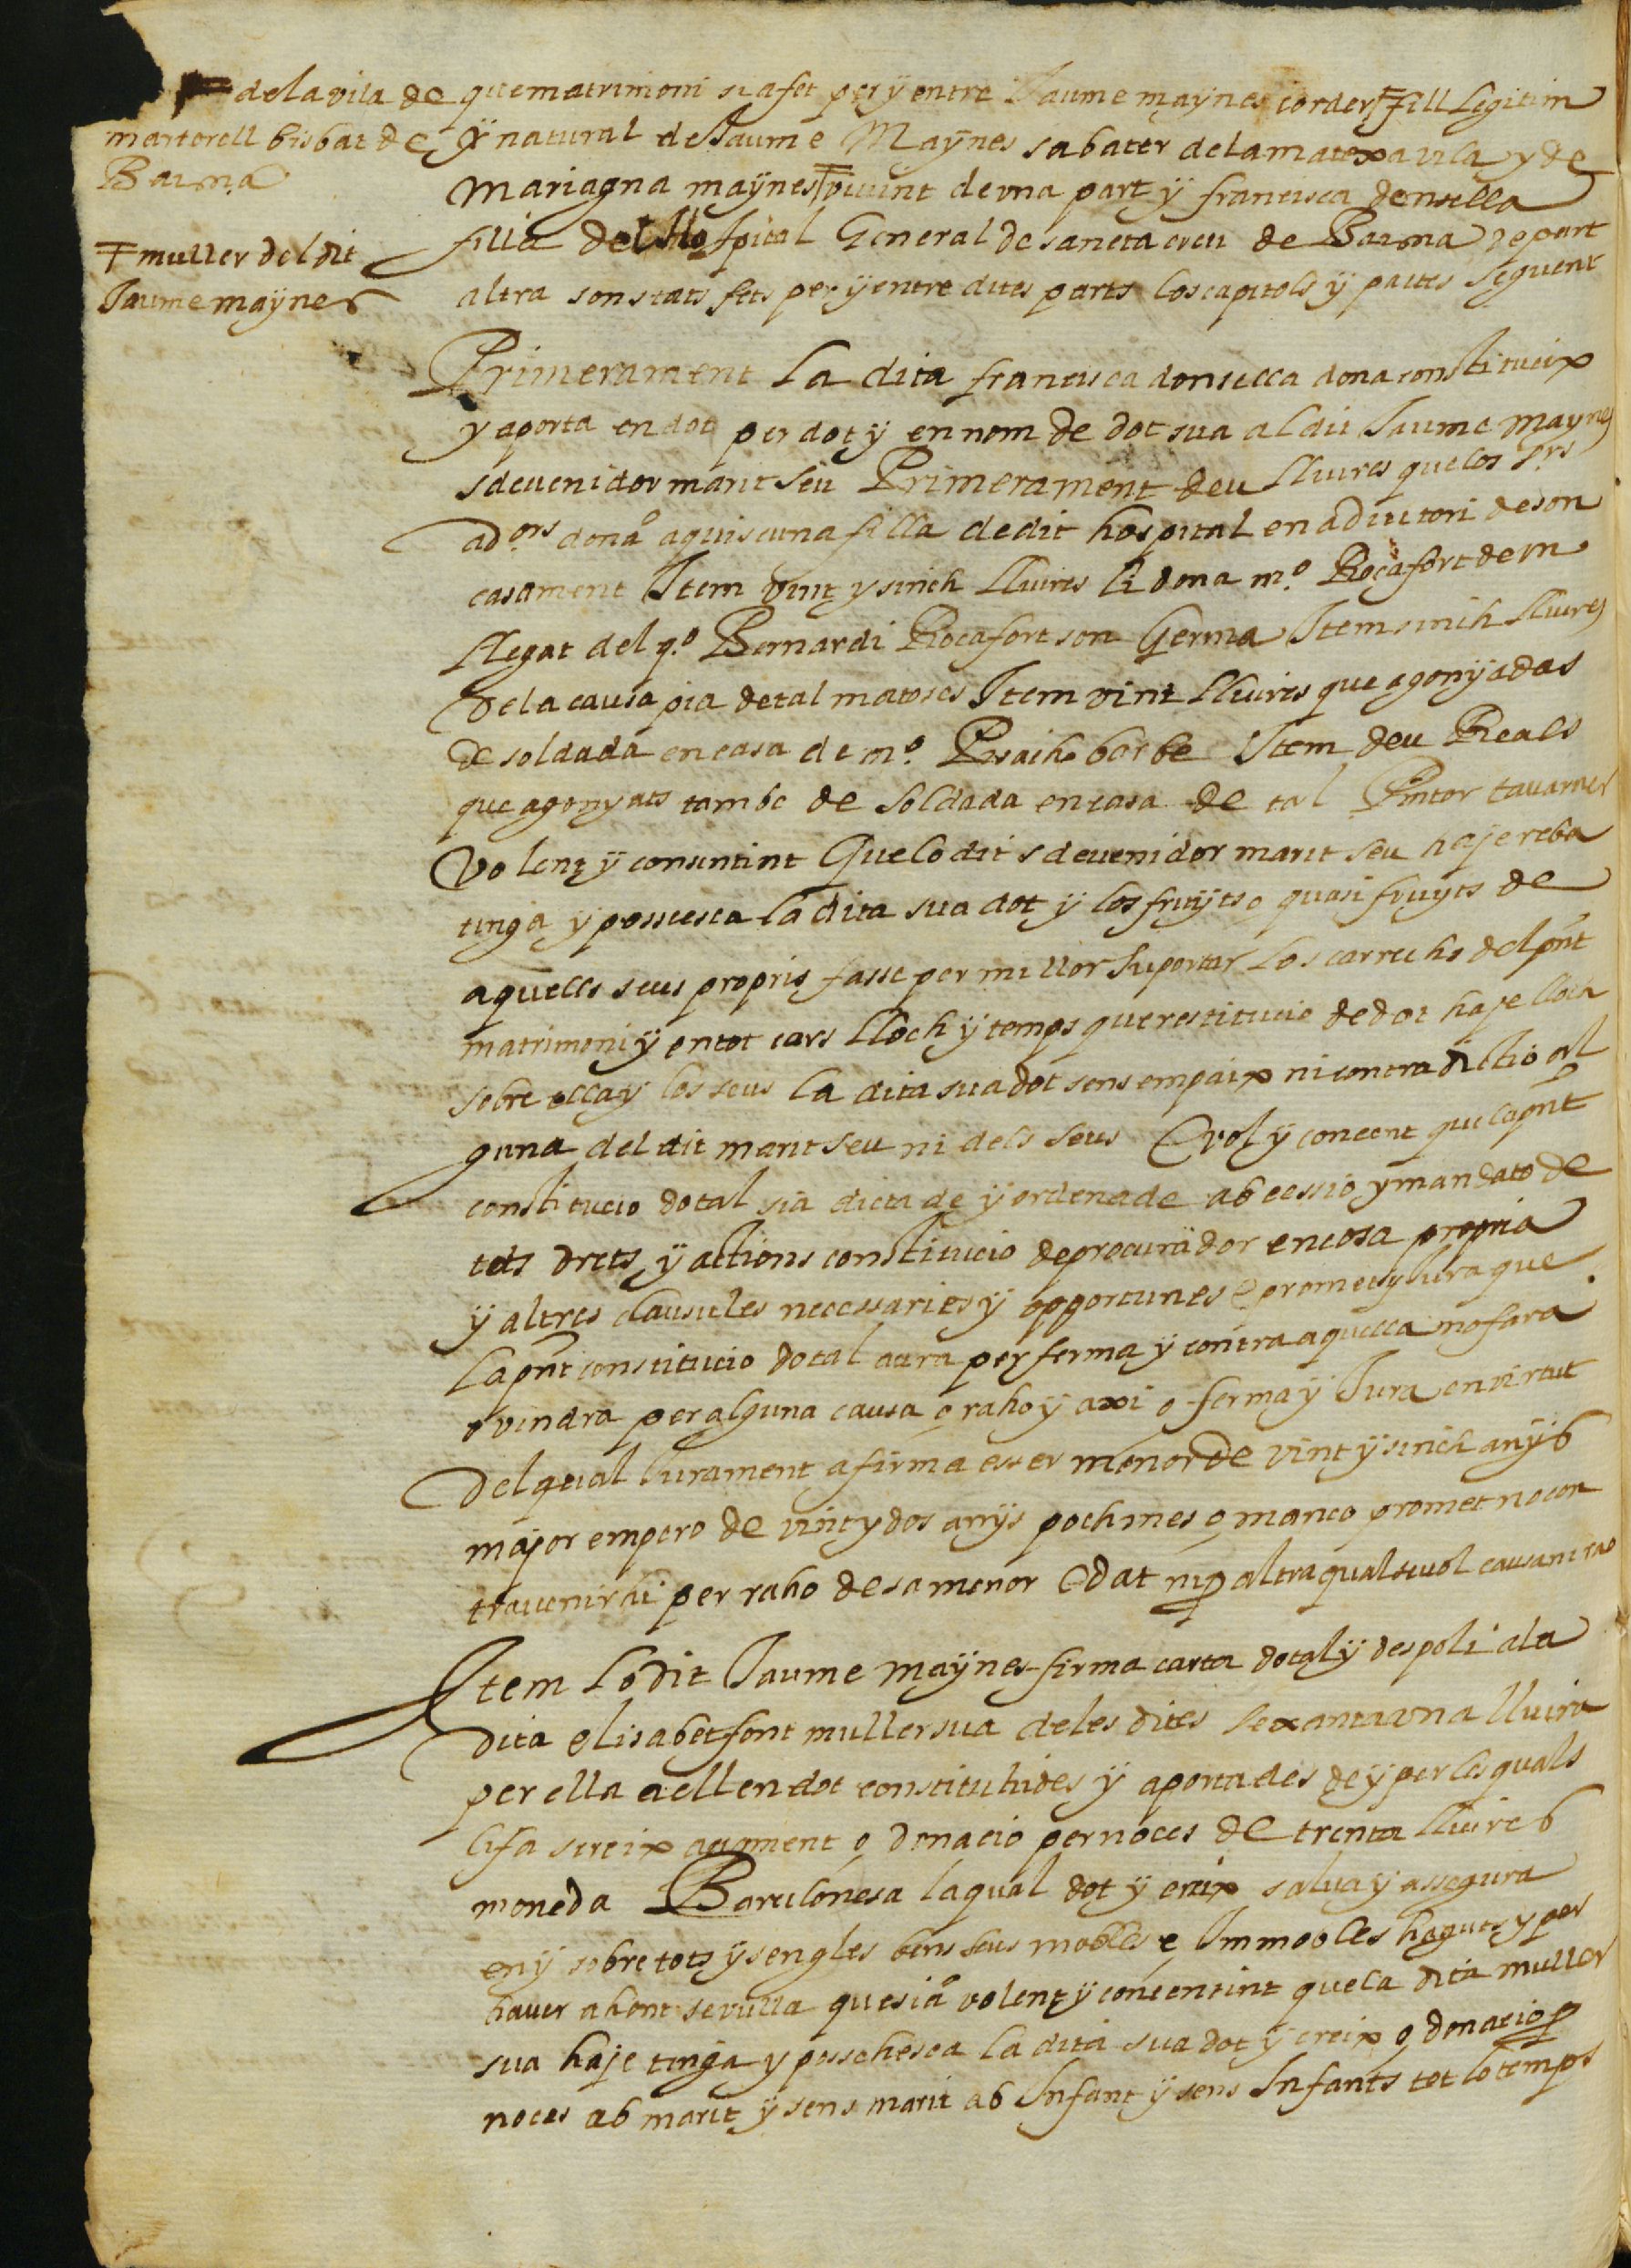 Ŧ de la vila de
martorell bisbat de
Barna
Ŧ muller del dit
Jaume maÿnes
que matrimoni sia fet per ÿ entre Jaume maÿnes corder Ŧ fill llegitim
ÿ natural de Jaume Maÿnes sabater de la matexa vila y de
Mariagna maÿnes Ŧ vivint de una part ÿ francisca donsella
filla del Hospital General de sancta creu de Barna de part
altra son stats fets per ÿ entre dites parts los capitols ÿ pactes seguent
Primerament la dita francisca donsella dona constitueix
y aporta en dot per dot ÿ en nom de dot sua al dit Jaume maynes
sdevenidor marit seu Primerament deu lliures que los srs
adors dona a quiscuna filla de dit hospital en adiutori de son
casament Item vint y sinch lliures li dona mo. Rocafort de un
llegat del qo. Bernardi Rocafort son Germa Item sinch lliures
de la causa pia de tal matoses Item vint lliures que a gonÿadas
de soldada en casa de mo. borbe Item deu Reals
que a gonyats tambe de soldada en casa de tal Pintor tavarner
volent ÿ consentint Que lo dit sdevenidor marit seu haje reba
tinga y possuesca la dita sua dot ÿ los fruÿts o quasi fruyts de
aquells seus propris fasse per millor suportar los carrechs del pnt
matrimoni ÿ en tot cars lloch ÿ temps que restitucio de dot haje lloch
sobre ella ÿ los seus la dita sua dot sens empaix ni contradictio al
guna del dit marit seu ni dels seus E vol ÿ concent que la pnt
constitucio dotal sia dictade ÿ ordenade ab cessio y mandato de
tots drets ÿ actions constitucio de procurador en cosa propria
ÿ altres clausules necessaries ÿ opportunes E promet y Jura que
la pnt constitucio dotal aura per ferma ÿ contra aquella no fara
o vindra per alguna causa o raho ÿ axi o ferma ÿ Jura en virtut
del qual Jurament afirma esser menor de vint ÿ sinch anÿs
major empero de vint y dos anÿs poch mes o manco promet no con
travenir ÿ per raho de sa menor Edat ni p altra qualsevol causa ni rao
Item lo dit Jaume maÿnes firma carta dotal ÿ despoli a la
dita elisabet font muller sua de les dites sexanta una lliura
per ella a ell en dot constituhides ÿ aportades de ÿ per les quals
li fa screix augment o donacio per noces de trenta lliures
moneda Barcelonesa la qual dot ÿ creix salva ÿ assegura
en ÿ sobre tots ÿ sengles bens seus mobles e Immobles haguts y per
haver ahont se vulla que sia volent ÿ concentint que la dita muller
sua haje tinga y posschesca la dita sua dot ÿ creix o donacio p
noces ab marit ÿ sens marit ab Infant ÿ sens Infants tot lo temps